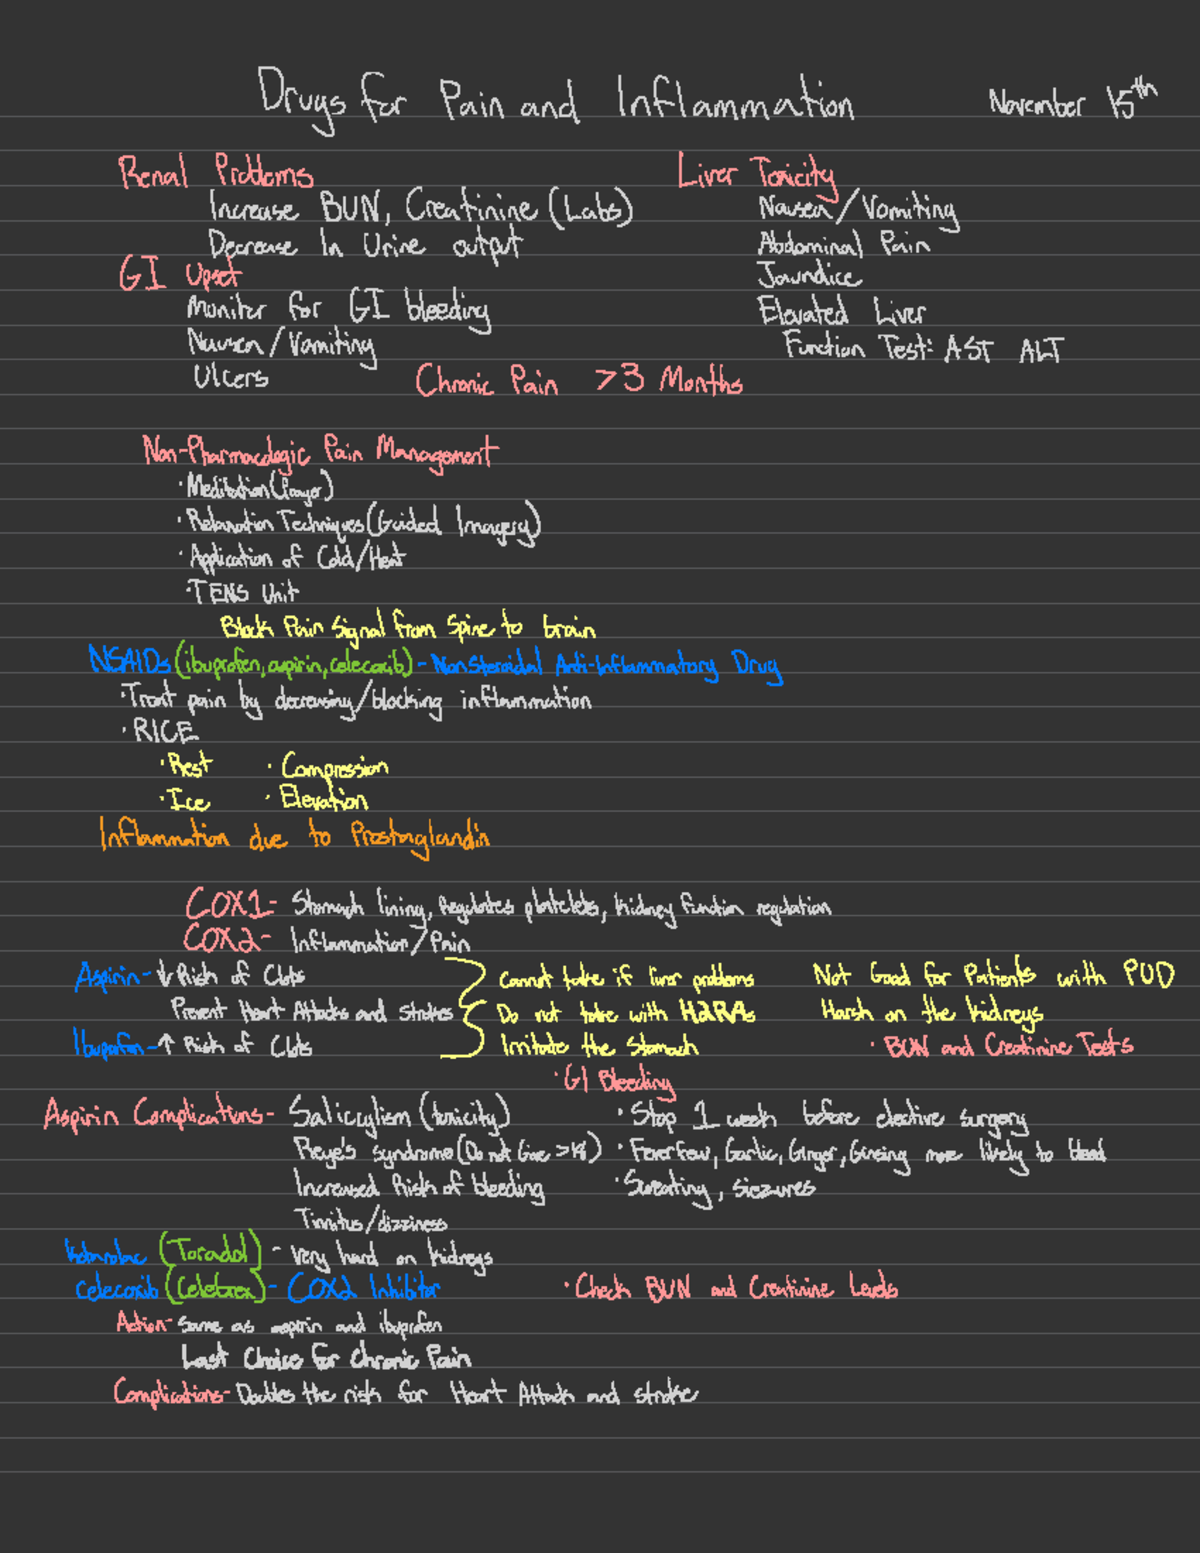 Drugs for Pain and Inflammation November 15th
Renal Problems
Increase BUN, Creatinine (Labs)
Decrease In Urine output
GI Upset
Monitor for GI bleeding
Nausea/Vomiting
Ulcers
Liver Toxicity
Nausea/Vomiting
Abdominal Pain
Jaundice
Elevated Liver
Function Test: AST ALT
Chronic Pain >3 Months
Non-Pharmacologic Pain Management
· Meditation (Prayer)
· Relaxation Techniques (Guided Imagery)
· Application of Cold/Heat
· TENS Unit
Block Pain Signal from Spine to brain
NSAIDs (ibuprofen, aspirin, celecoxib) - NonSteroidal Anti-Inflammatory Drug
· Treat pain by decreasing/blocking inflammation
· RICE
· Rest · Compression
· Ice · Elevation
Inflammation due to Prostaglandin
COX1- Stomach lining, Regulates platelets, Kidney function regulation
COX2- Inflammation/Pain
Aspirin- ↓ Risk of Clots
Prevent Heart Attacks and strokes
Ibuprofen- ↑ Risk of Clots
Cannot take if liver problems Not Good for Patients with PUD
Do not take with H2RAs Harsh on the kidneys
Irritate the Stomach · BUN and Creatinine Tests
· GI Bleeding
Aspirin Complications- Salicylism (toxicity) · Stop 1 week before elective surgery
Reye's syndrome (Do not Give >18) · Feverfew, Garlic, Ginger, Ginsing more likely to bleed
Increased Risk of bleeding · Sweating, siezures
Tinnitus/dizziness
Ketorolac (Toradol) - very hard on kidneys
celecoxib (Celebrex) - COX2 Inhibitor · Check BUN and Creatinine Levels
Action- same as aspirin and ibuprofen
Last Choice for chronic Pain
Complications- Doubles the risk for Heart Attack and stroke